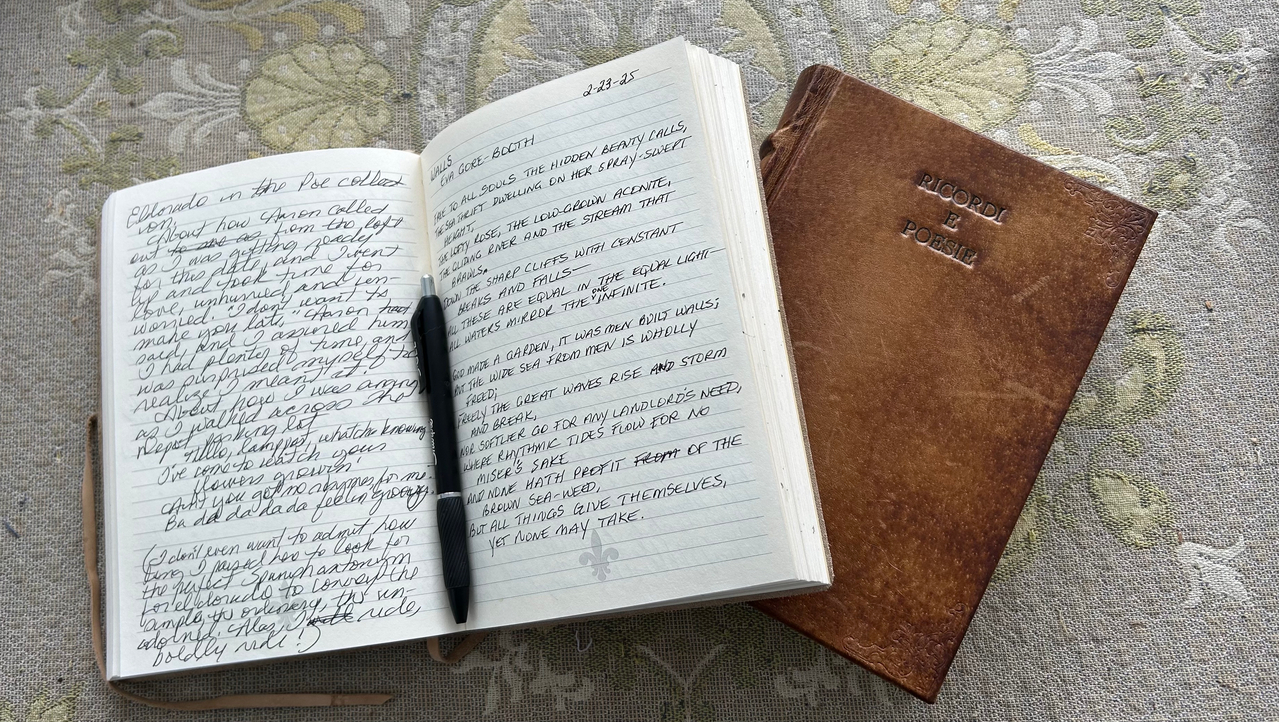 Eldorado in the Poe collect
ion.
About how Aaron called
out to me as from the loft
as I was getting ready
for this date, and I went
up and took time for
love, unhurried and un-
worried. "I don't want to
make you late," Aaron had
said, and I assured him
I had plenty of time, and
was surprised myself to
realize I meant it.
About how I was angry
as I walked across the
Depot parking lot
"Hello, lamppost, whatcha knowing
I've come to watch your
flowers growin'
Ain't you got no rhymes for me?
Ba da da da da feelin' groovy."
(I don't even want to admit how
long I paused here to look for
the perfect
for el dorado to convey the
simple, the ordinary, the un-
adorned. Alas, I will ride,
boldly ride!)
2-23-25
WALLS
EVA GORE-BOOTH
FREE TO ALL SOULS THE HIDDEN BEAUTY CALLS,
THE SEA THRIFT DWELLING ON HER SPRAY-SWEPT
HEIGHT,
THE LOFTY ROSE, THE LOW-GROWN ACONITE,
THE GLIDING RIVER AND THE STREAM THAT
BRAWLS
DOWN THE SHARP CLIFFS WITH CONSTANT
BREAKS AND FALLS—
ALL THESE ARE EQUAL IN THE EQUAL LIGHT—
ALL WATERS MIRROR THE ONE INFINITE.
GOD MADE A GARDEN, IT WAS MEN BUILT WALLS;
BUT THE WIDE SEA FROM MEN IS WHOLLY
FREED;
FREELY THE GREAT WAVES RISE AND STORM
AND BREAK,
NOR SOFTLIER GO FOR ANY LANDLORD'S NEED,
WHERE RHYTHMIC TIDES FLOW FOR NO
MISER'S SAKE
AND NONE HATH PROFIT FROM OF THE
BROWN SEA-WEED,
BUT ALL THINGS GIVE THEMSELVES,
YET NONE MAY TAKE.
RICORDI
E
POESIE